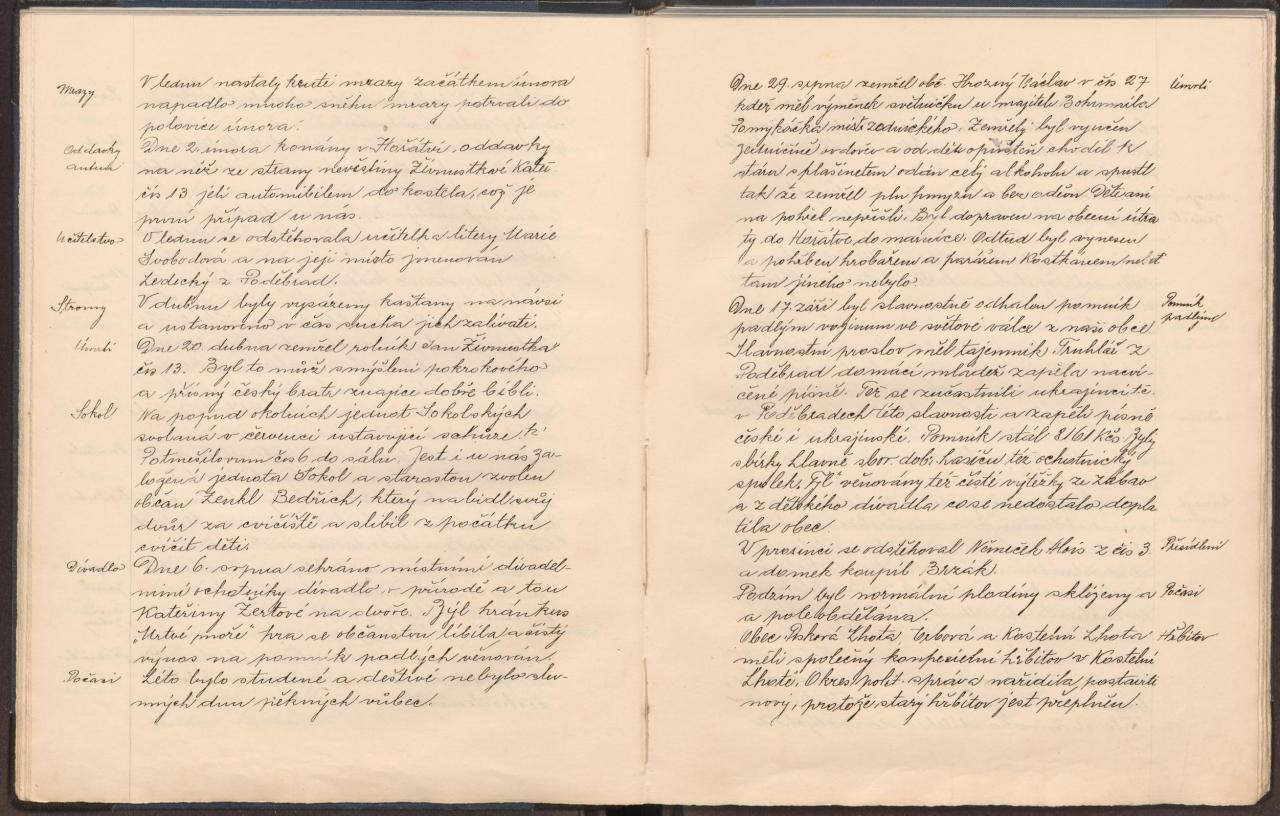 Mrazy
V lednu nastaly kruté mrazy začátkem února
napadlo mnoho sněhu mrazy potrvali do
polovice února.
Oddavky
autem
Dne 2. února konány v Hořátvi oddavky
na něž ze strany nevěstiny Živnustkové Kateř.
čís 13 jeli automobilem do kostela, což je
první případ u nás.
Učitelstvo
V lednu se odstěhovala učitelka litery Marie
Svobodová a na její místo jmenován
Ledecký z Poděbrad.
Stromy
V dubnu byly vysázeny kaštany na návsi
a ustanoveno v čas sucha jich zalívati.
Úmrtí
Dne 20. dubna zemřel rolník Jan Živnustka
čís 13. Byl to můž smýšlení pokrokového
a přísný český bratr znajíce dobře bibli.
Sokol
Na popud okolních jednot Sokolských
svolaná v červenci ustavující schůze k
Potměšilovum čís 6 do sálu. Jest i u nás za-
ložená jednota Sokol a starostou zvolen
občan Zenkl Bedřich, který nabidl svůj
dvůr za cvičiště a slíbil z počátku
cvičit děti.
Divadlo
Dne 6. srpna sehráno místními divadel-
ními ochotníky divadlo v přírodě a tou
Kateřiny Žertové na dvoře. Byl hrán kus
„Mrtvé moře" hra se občanstvu líbila a čistý
výnos na pomník padlých věnován.
Počasí
Léto bylo studené a deštivé nebylo slu-
nných dnu pěkných vůbec.
Dne 29. srpna zemřel obč. Hrozný Václav v čís 27
Úmrtí
kdež měl výměnek světničku u majitele Bohumila
Pomykáčka mistr zednického. Zemřelý byl vyučen
zedničině vdovec a od dětí opuštěn chodil k
stáru s flašinetem oddán celý alkoholu a spustl
tak že zemřel pln hmyzu a bez oděvu Děti ani
na pohřeb nepřišli. Byl dopraven na obecní útra
ty do Hořátve do marnice. Odtud byl vynesen
a pohřben hrobařem a farářem Kostkánem neboť
tam jiného nebylo.
Dne 17. září byl slavnostně odhalen pomník
Pomník
padlým
padlým vojínum ve světové válce z naší obce
Slavnostní proslov měl tajemník Truhlář z
Poděbrad domácí mládež zapěla nacvi-
čené písně. Též se zúčastnili ukrajinci t.č.
v Poděbradech této slavnosti a zapěli písně
české i ukrajinské. Pomník stál 8161 Kčs. Byly
sbírky hlavně sbor. dob. hasičů též ochotnický
spolek „Tyl" věnovány též čisté výtěžky ze zábav
a z dětského divadla co se nedostalo dopla
tila obec.
V prosinci se odstěhoval Němeček Alois z čís 3.
Přesídlení
a domek koupil Brzák.
Podzim byl normální plodiny sklizeny a
Počasí
a pole obdělána.
Obec Písková Lhota, Vrbová a Kostelní Lhota
Hřbitov
měli společný konfesielní hřbitov v Kostelní
Lhotě. Okres. polit. správa nařídila postaviti
nový, protože starý hřbitov jest přeplněn.